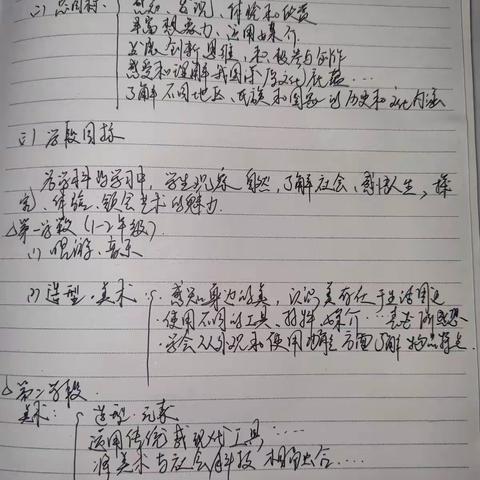 (一) 总目标 感知、发现、体验和欣赏
丰富想象力、运用媒介
发展创新思维, 积极参与合作
感受和理解我国深厚文化底蕴…
了解不同地区、民族和国家的历史和文化内涵
(二) 学段目标
各学科的学习中, 学生观察自然, 了解社会、感悟人生, 探
究、体验、领会艺术的魅力.
△第一学段 (1-2年级)
(1) 唱游、音乐
(2) 造型·美术 · 感知身边的美, 认识美存在于生活周边
· 使用不同的工具、材料、媒介…表达所思想
· 学会从外观和使用功能方面了解物品特点.
△第二学段.
美术: 造型·元素
运用传统或现代工具…
将美术与社会科技相融合…